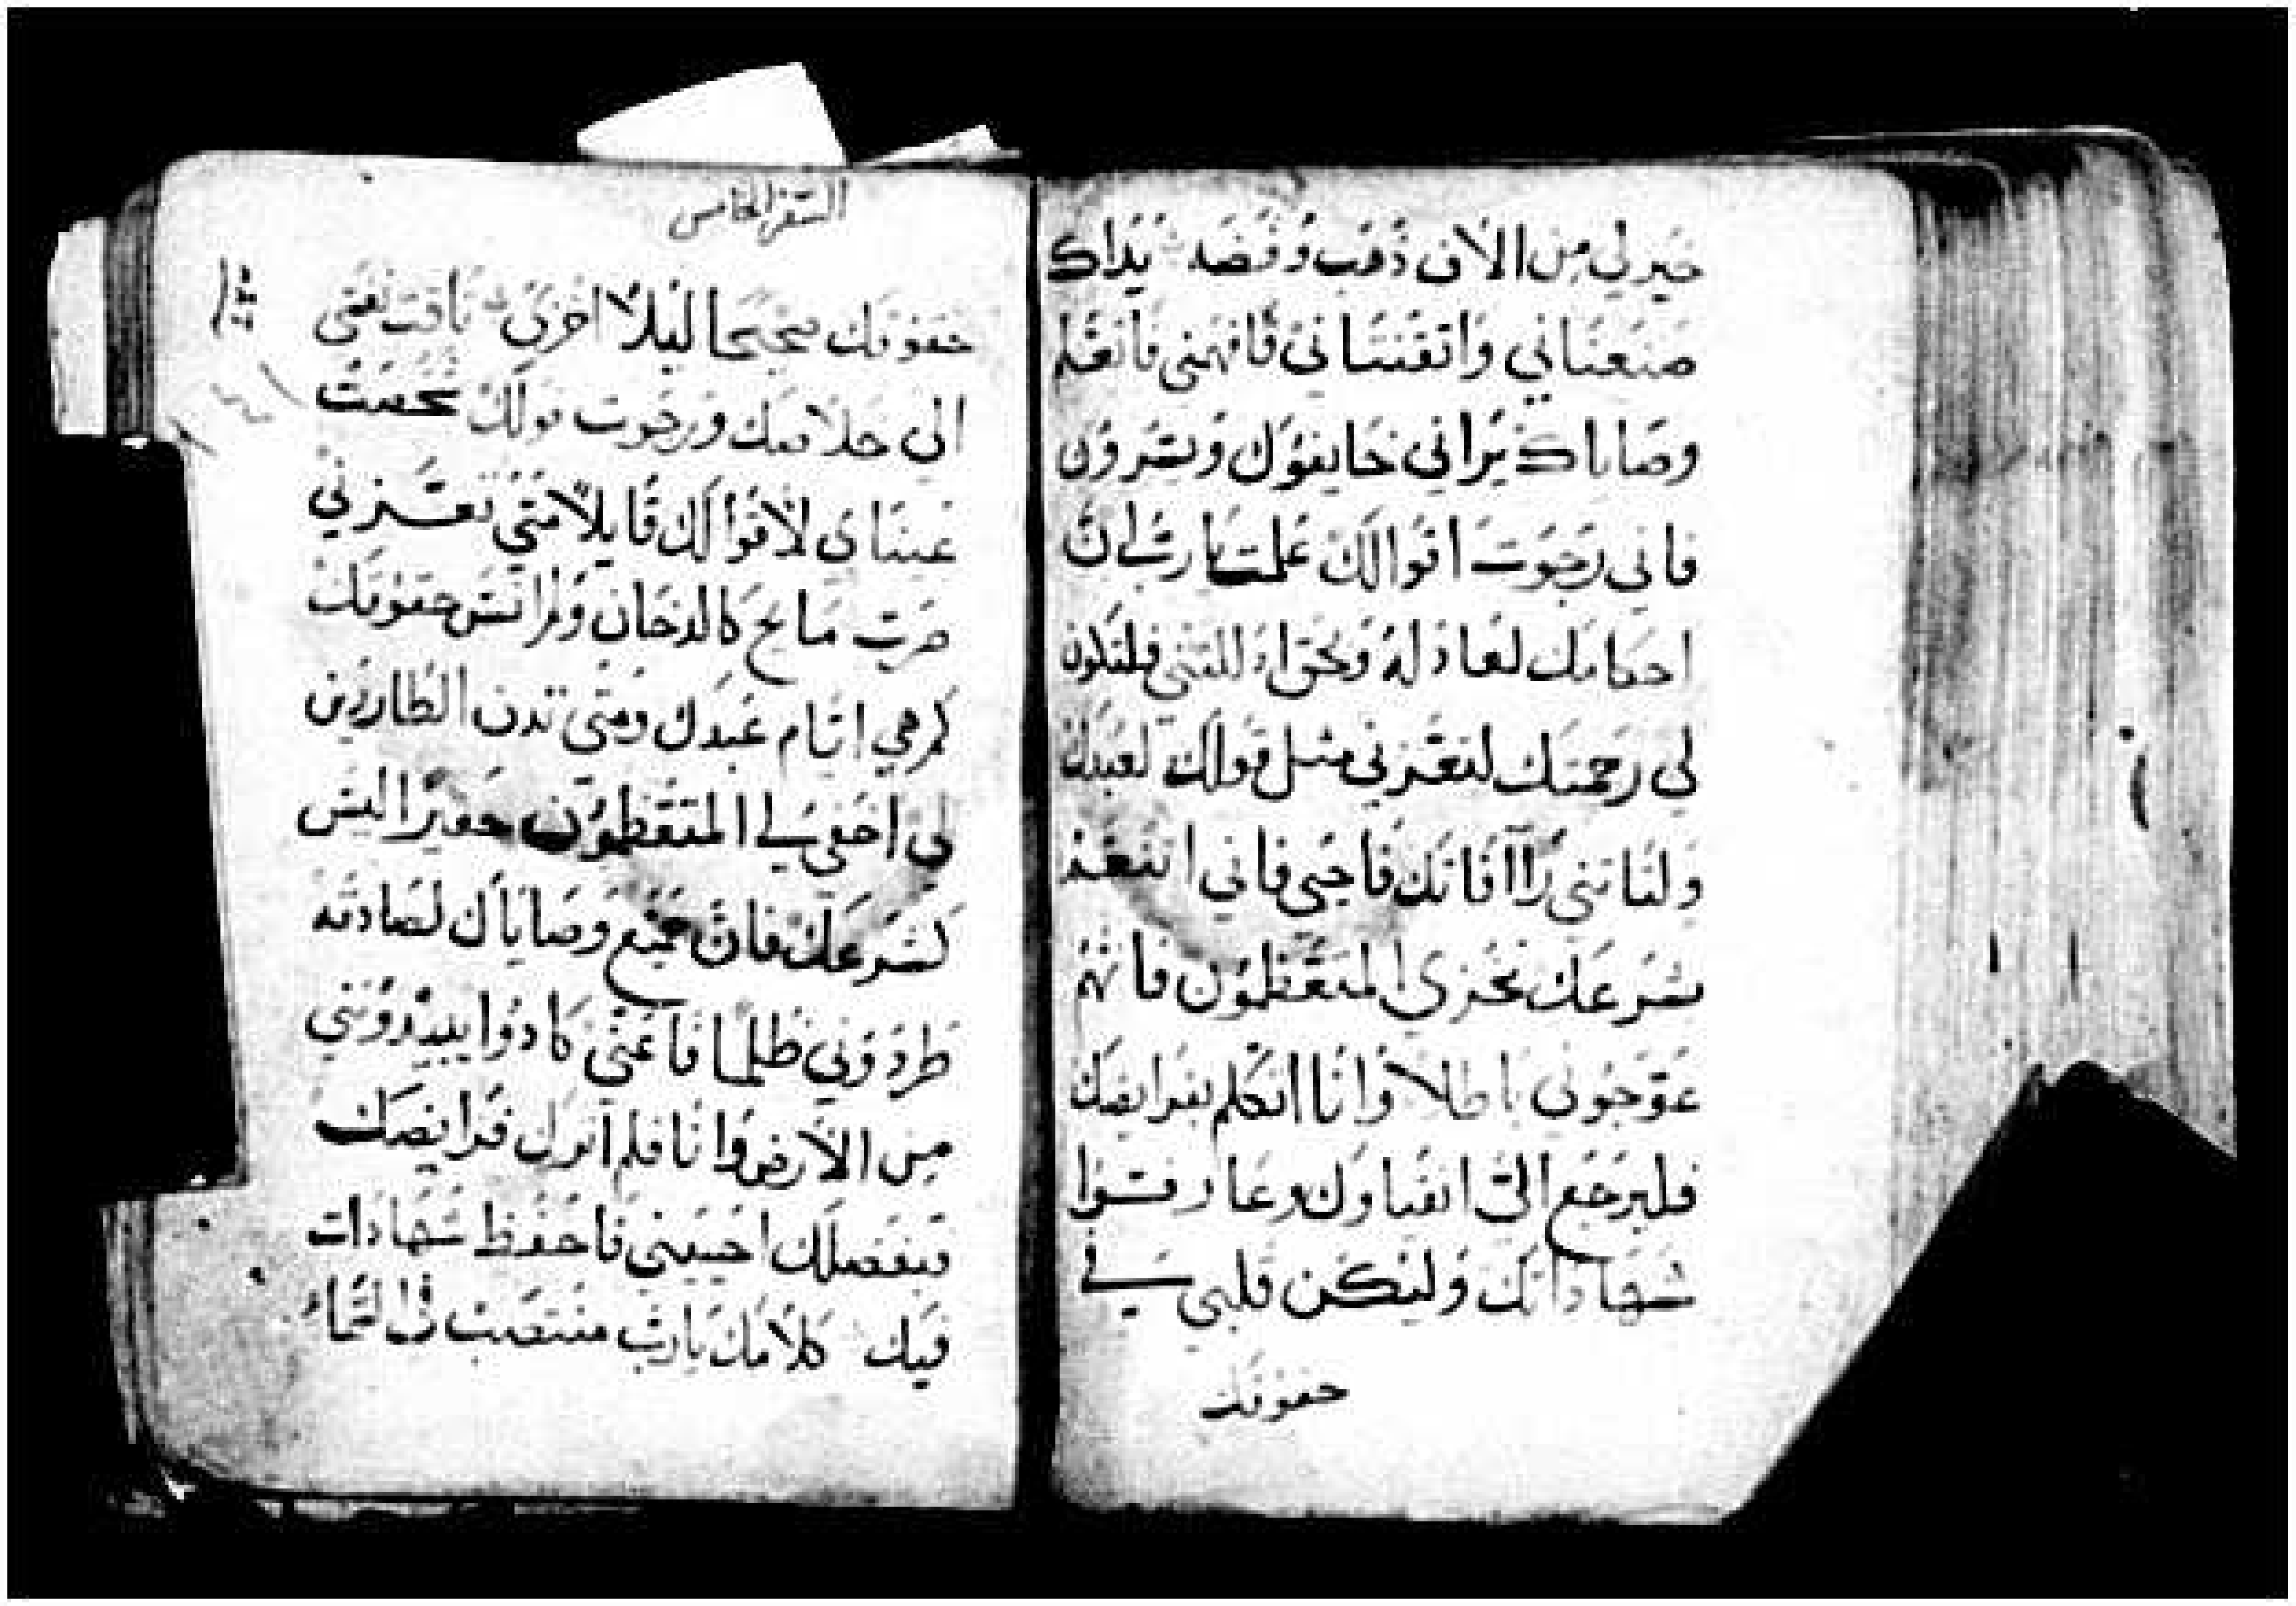 خير لي من الاف ذهب وفضه يداك
صنعتاني واتقنتاني فافهمني فاتعلم
وصاياك يراني خايفوك ويسرون
فاني رجوت اقوالك علمت يارب ان
احكامك لعادله وبحق اذللتني فلتكون
لي رحمتك لتعزني مثل قولك لعبدك
ولتاتني رأافاتك فاحيى فاني اتنعم
شرعك يخزى المتعظمون فانهم
عوجوني باطلا وانا اتكلم بفرايضك
فليرجع الي اتقياوك وعارفوا
شهاداتك وليكن قلبي في
حقوقك
السفر الخامس
حقوقك صحيحا ليلا اخزى تاقت نفسي
الى خلاصك ورجوت قولك شخصت
عيناى لاقوالك قايلا متى تعزني
صرت مايح كالدخان ولم انس حقوقك
كم هي ايام عبدك ومتى تدن الطاردين
لي اخفى لي المتعظمون حفيرا ليس
كشرعك فان جميع وصاياك لصادقه
طردوني ظلما فاعني كادوا يبيدونني
من الارض وانا فلم اترك فرايضك
فبفضلك احييني فاحفظ شهادات
فيك كلامك يارب منتصب في السماء